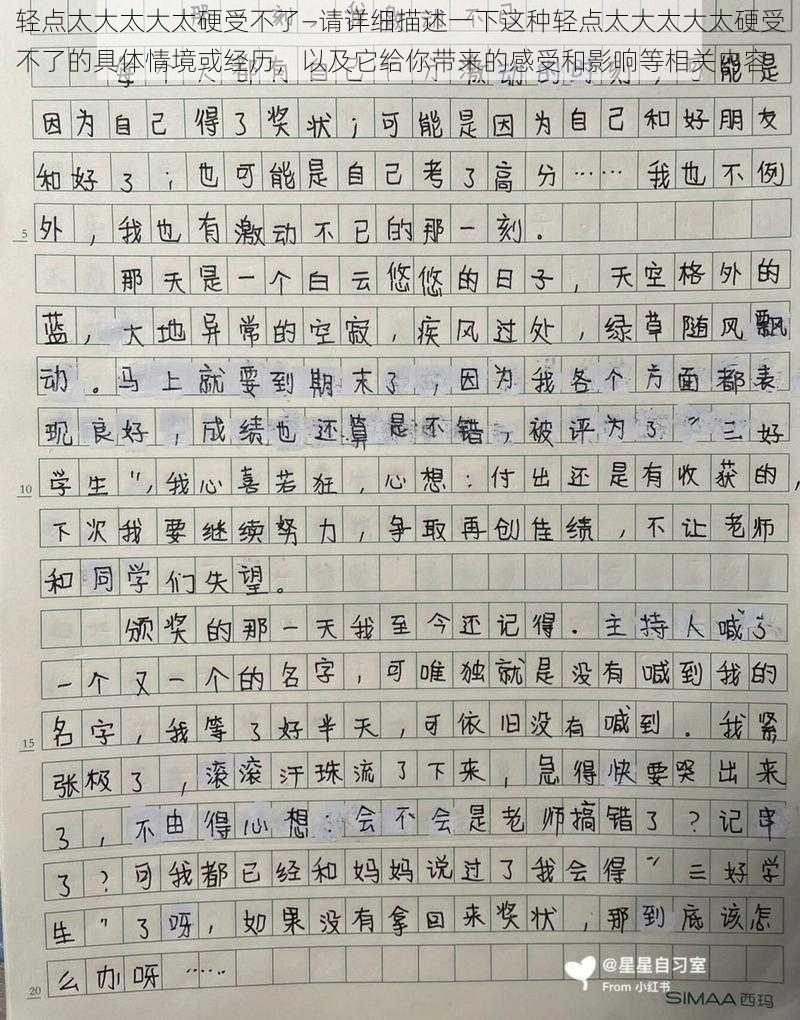 轻点太大太大太硬受不了–请详细描述一下这种轻点太大太大太硬受
不了的具体情境或经历，以及它给你带来的感受和影响等相关内容
能是
因为自己得了奖状；可能是因为自己和好朋友
和好了；也可能是自己考了高分……我也不例
5 外，我也有激动不已的那一刻。
那天是一个白云悠悠的日子，天空格外的
蓝，大地异常的空寂，疾风过处，绿草随风飘
动。马上就要到期末了，因为我各个方面都表
现良好，成绩也还算是不错，被评为了“三好
10 学生”，我心喜若狂，心想：付出还是有收获的，
下次我要继续努力，争取再创佳绩，不让老师
和同学们失望。
颁奖的那一天我至今还记得．主持人喊了
一个又一个的名字，可唯独就是没有喊到我的
15 名字，我等了好半天，可依旧没有喊到。我紧
张极了，滚滚汗珠流了下来，急得快要哭出来
了，不由得心想：会不会是老师搞错了？记串
了？可我都已经和妈妈说过了我会得“三好学
生”了呀，如果没有拿回来奖状，那到底该怎
20 么办呀……
@星星自习室
From 小红书
SIMAA西玛